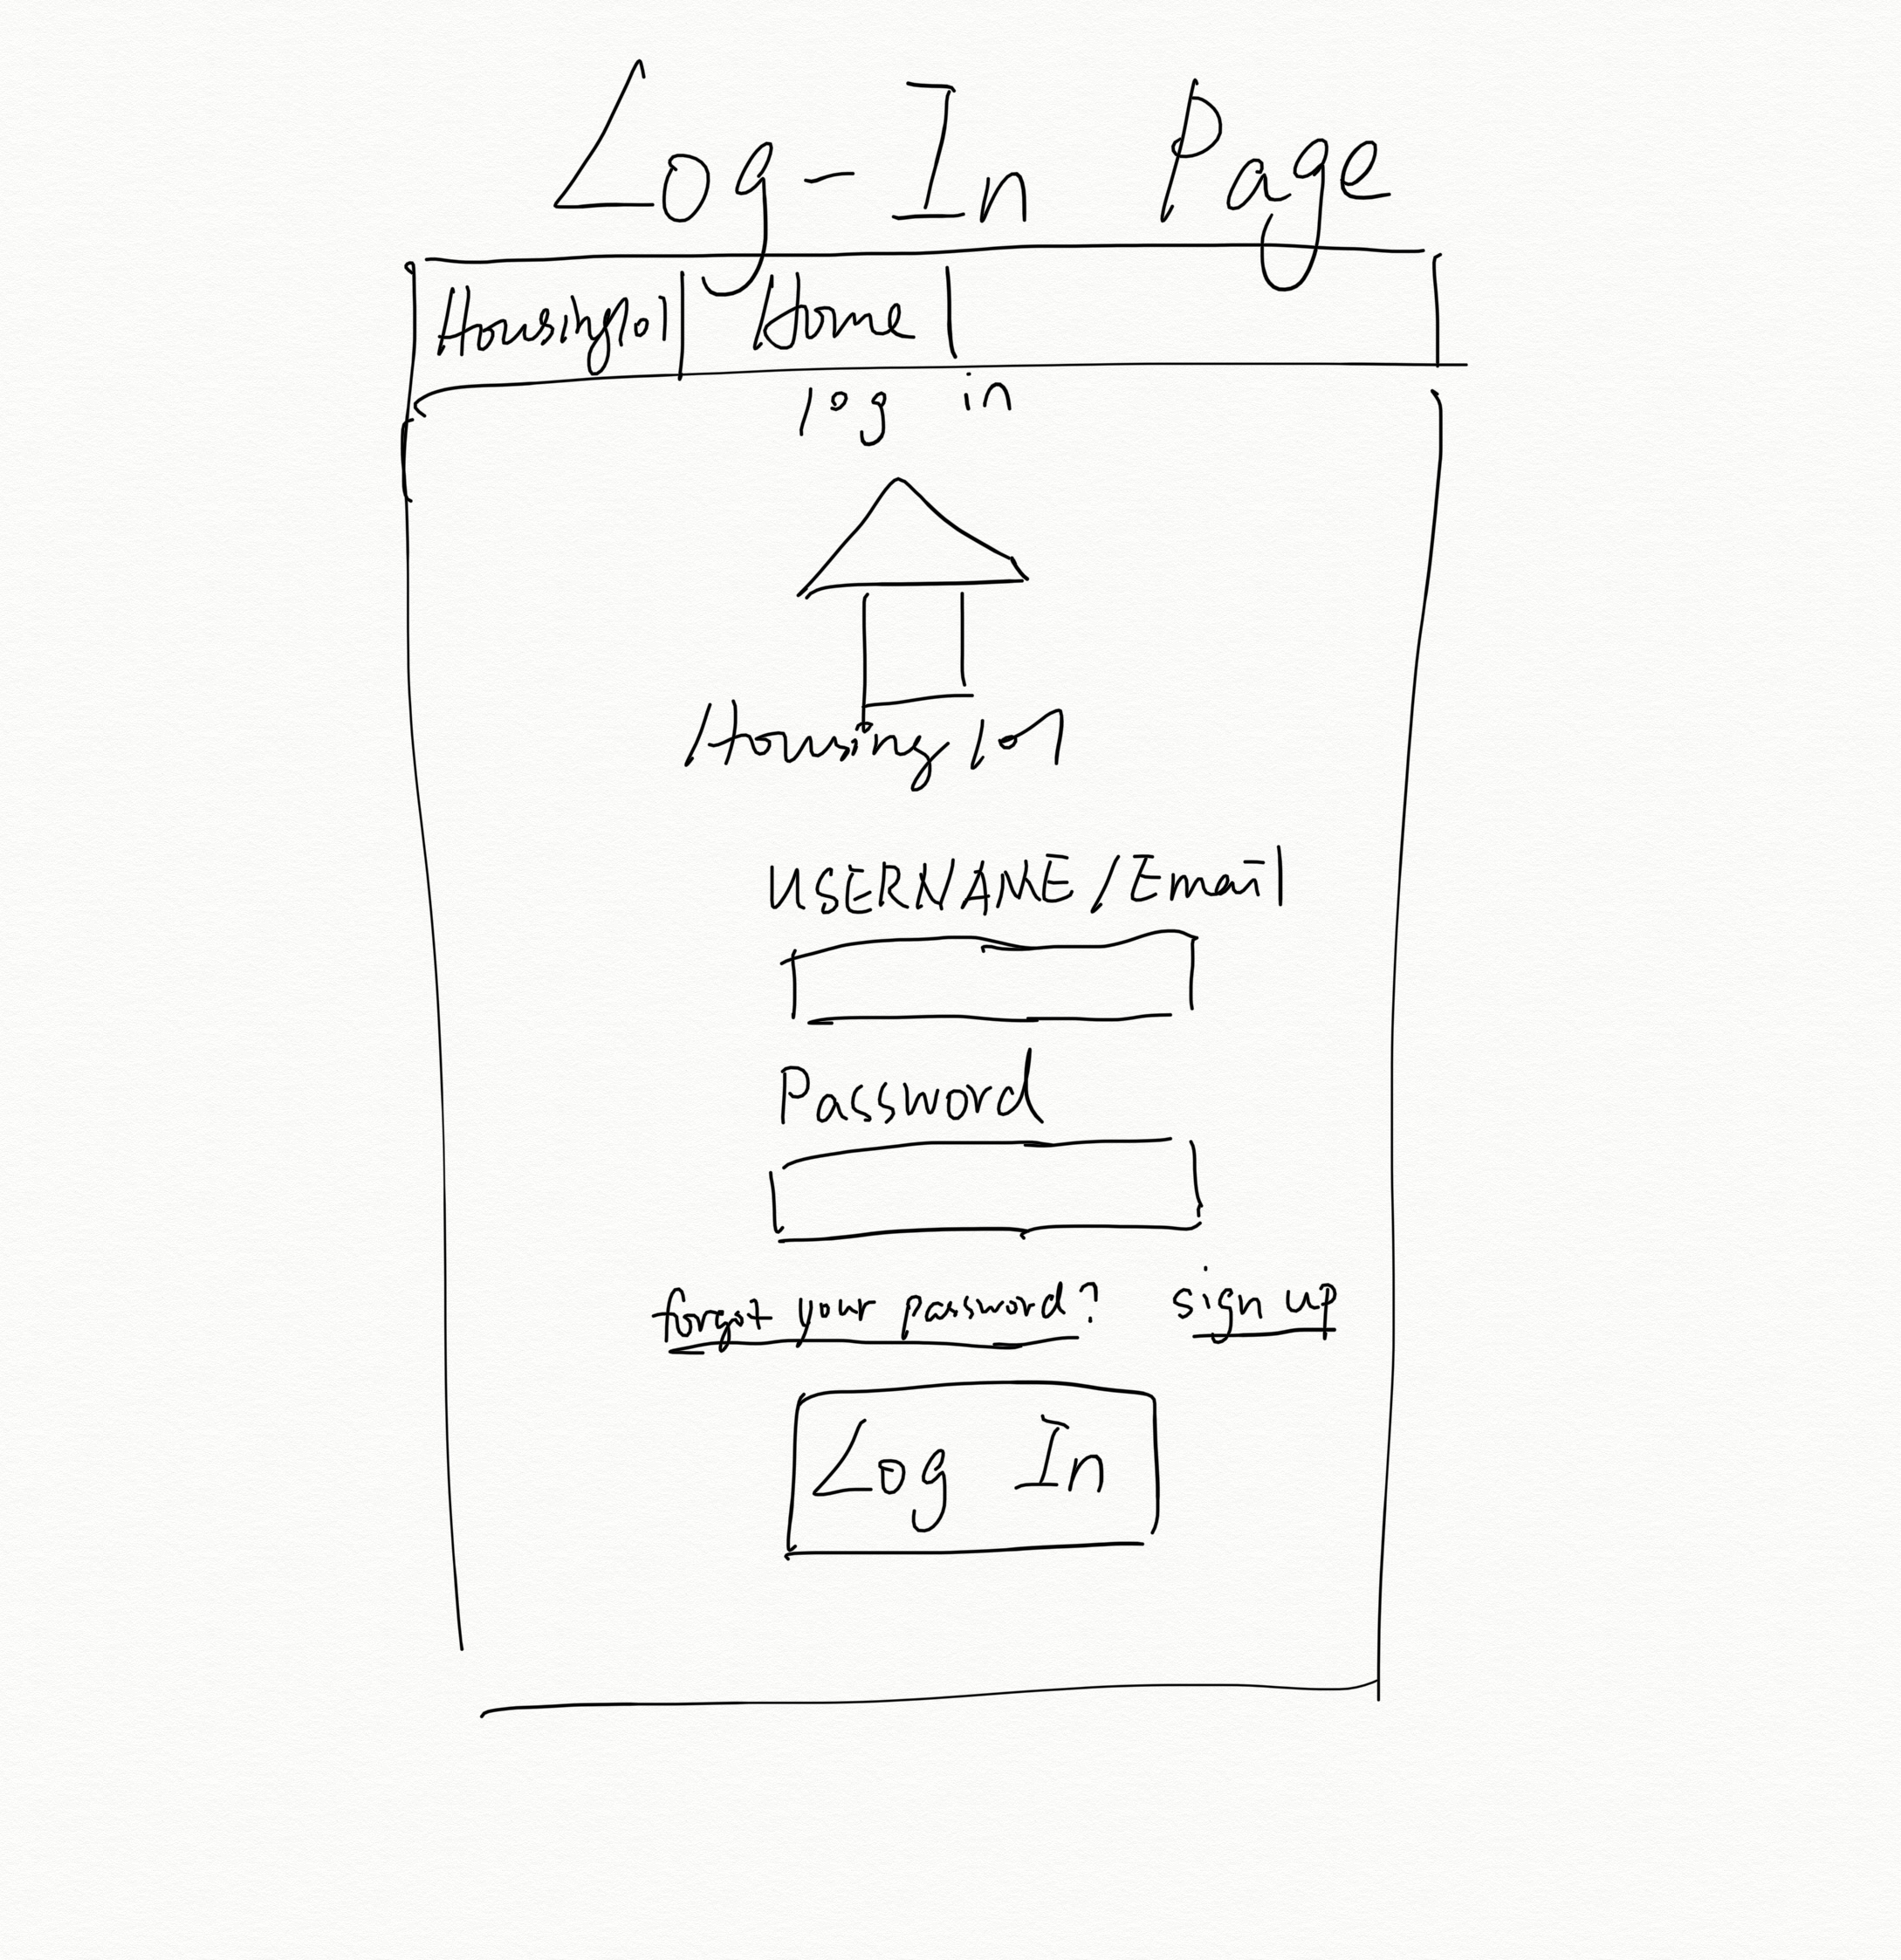 Log-In Page
Housing101 Home
log in
Housing 101
USERNAME/Email
Password
forgot your password? sign up
Log In